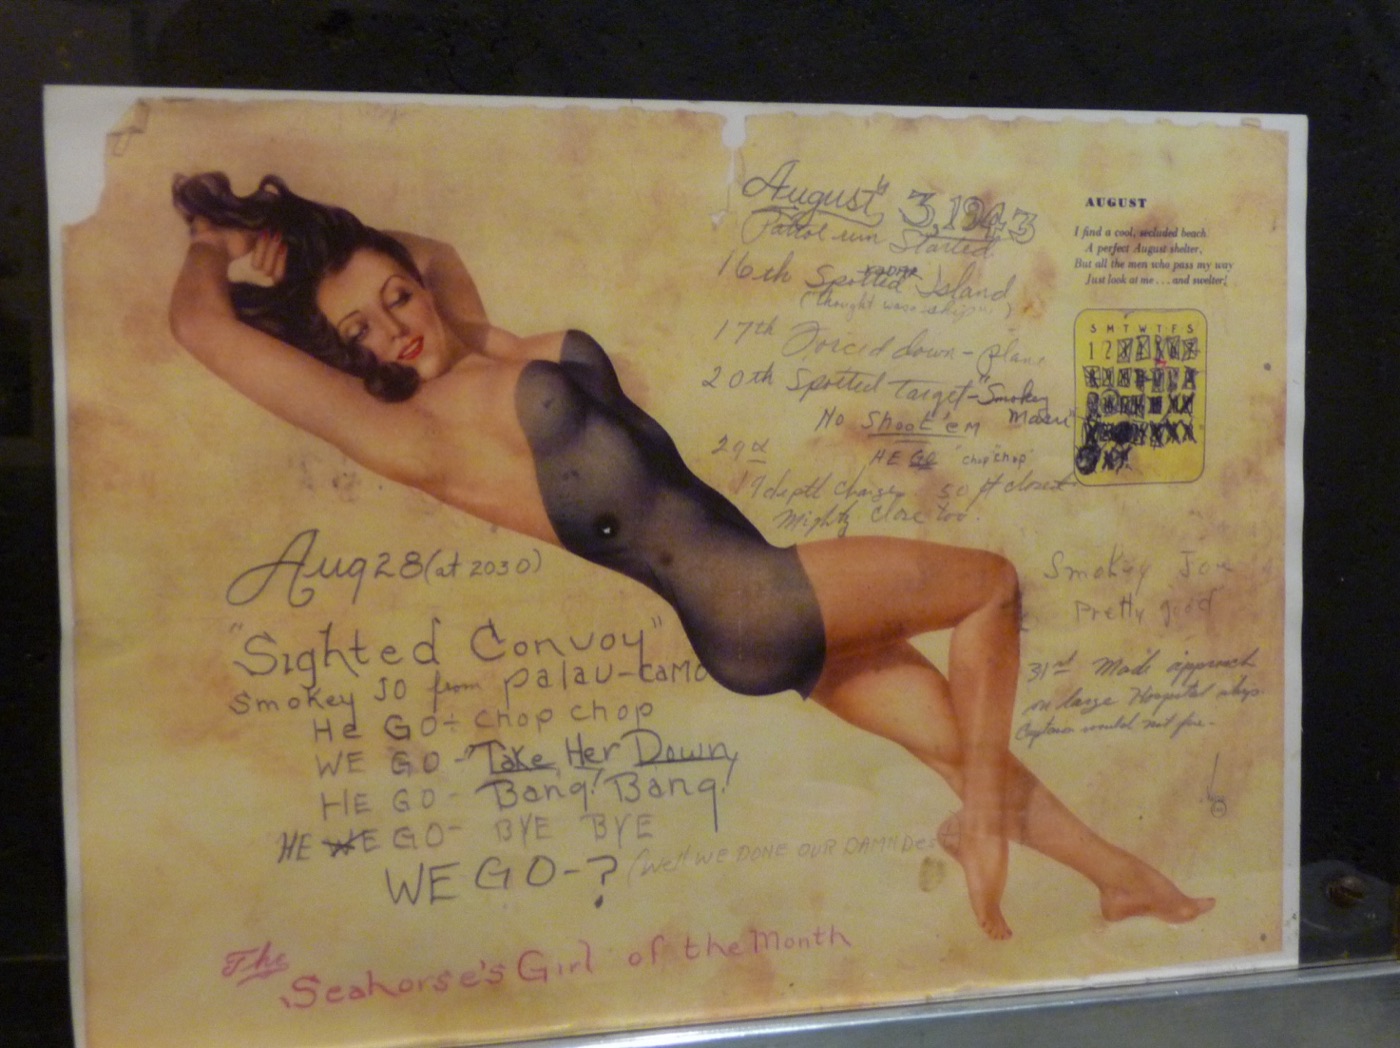 August's 3, 1943
Patrol run Started
16th Spotted Island
(thought was a ship")
17th Forced down - plane
20th Spotted Target - "Smokey
Maru"
No Shoot'em
HE GO "chop chop"
29th
19 depth charges 50 ft closest
Mighty close too.
AUGUST
I find a cool, secluded beach
A perfect August shelter,
But all the men who pass my way
Just look at me . . . and swelter!
S M T W T F S
1 2
Smokey Joe
Pretty good
31st Made approach
on large Hospital ship.
Captain would not fire -
Aug 28 (at 2030)
"Sighted Convoy"
Smokey JO from Palau - came
He GO - chop chop
WE GO - "Take Her Down,
HE GO - Bang! Bang!
HE WE GO - BYE BYE
WE GO - ? (Well WE DONE OUR DAMNDest)
The Seahorse's Girl of the Month